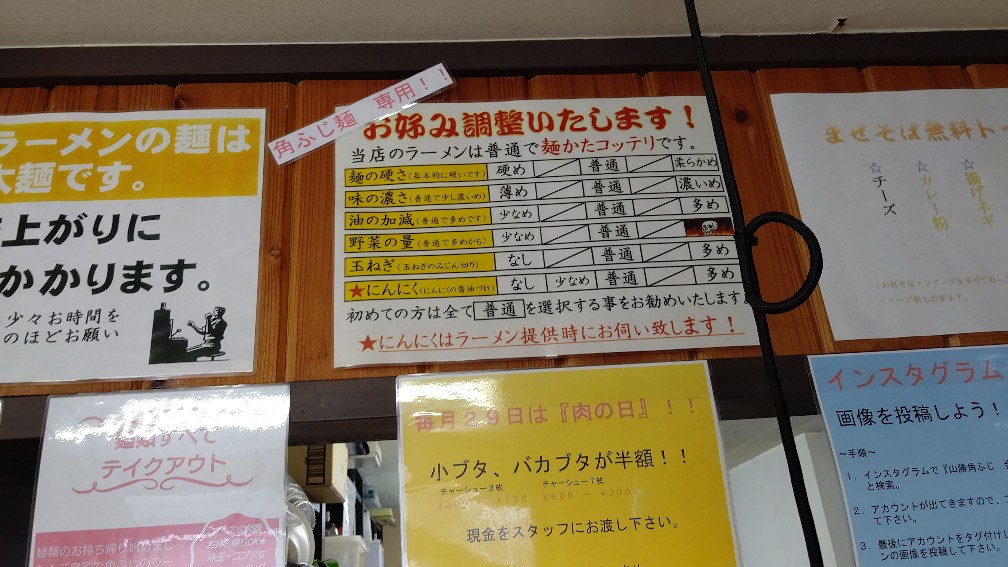 ラーメンの麺は
太麺です。
上がりに
かかります。
少々お時間を
のほどお願い
角ふじ麺 専用!!
お好み調整いたします!
当店のラーメンは普通で麺かたコッテリです。
麺の硬さ(基本的に硬いです) 硬め 普通 柔らかめ
味の濃さ(普通で少し濃いめ) 薄め 普通 濃いめ
油の加減(普通で多めです) 少なめ 普通 多め
野菜の量(普通で多めかも) 少なめ 普通
玉ねぎ(玉ねぎのみじん切り) なし 普通 多め
★にんにく(にんにくの醤油づけ) なし 少なめ 普通 多め
初めての方は全て 普通 を選択する事をお勧めいたします
★にんにくはラーメン提供時にお伺い致します!
まぜそば無料ト
☆揚げネギ
☆カレー粉
☆チーズ
麺類すべて
テイクアウト
麺類のお持ち帰り始めまし
毎月29日は『肉の日』!!
小ブタ、バカブタが半額!!
チャーシュー3枚 チャーシュー7枚
→¥150 ¥600→¥300
現金をスタッフにお渡し下さい。
インスタグラム
画像を投稿しよう!
~手順~
1. インスタグラムで『山勝角ふじ
と検索。
2. アカウントが出てきますので、
て下さい。
3. 最後にアカウントをタグ付けし
ンの画像を投稿して下さい。